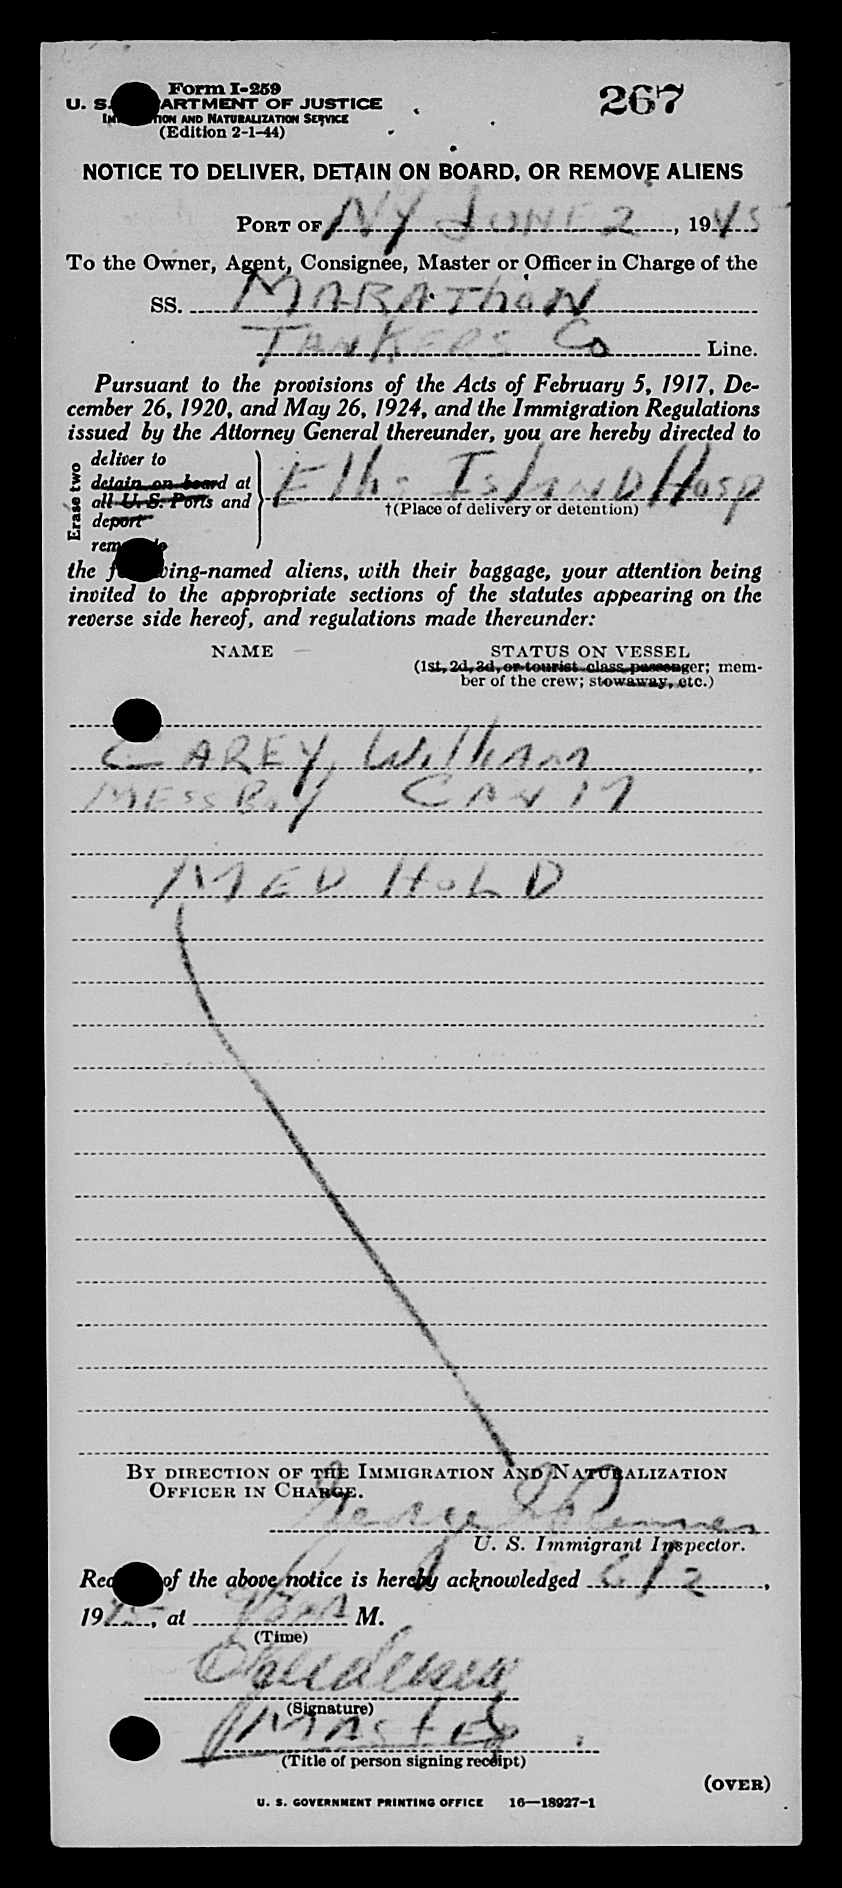 Form I-259
267
U. S. DEPARTMENT OF JUSTICE
IMMIGRATION AND NATURALIZATION SERVICE
(Edition 2-1-44)
NOTICE TO DELIVER, DETAIN ON BOARD, OR REMOVE ALIENS
PORT OF NY JUNE 2, 1945
To the Owner, Agent, Consignee, Master or Officer in Charge of the
SS. MARAThON
TANKERS Co Line.
Pursuant to the provisions of the Acts of February 5, 1917, De-
cember 26, 1920, and May 26, 1924, and the Immigration Regulations
issued by the Attorney General thereunder, you are hereby directed to
Erase two
deliver to
detain on board at
all U. S. Ports and
deport
remove to
Ellis Island Hosp
†(Place of delivery or detention)
the following-named aliens, with their baggage, your attention being
invited to the appropriate sections of the statutes appearing on the
reverse side hereof, and regulations made thereunder:
NAME STATUS ON VESSEL
(1st, 2d, 3d, or tourist class passenger; mem-
ber of the crew; stowaway, etc.)
CAREY, William
MESSBoy CAN 17
MED HOLD
BY DIRECTION OF THE IMMIGRATION AND NATURALIZATION
OFFICER IN CHARGE.
George
U. S. Immigrant Inspector.
Receipt of the above notice is hereby acknowledged 6/2,
1945, at M.
(Time)
(Signature)
Master
(Title of person signing receipt)
(OVER)
U. S. GOVERNMENT PRINTING OFFICE 16—18927-1